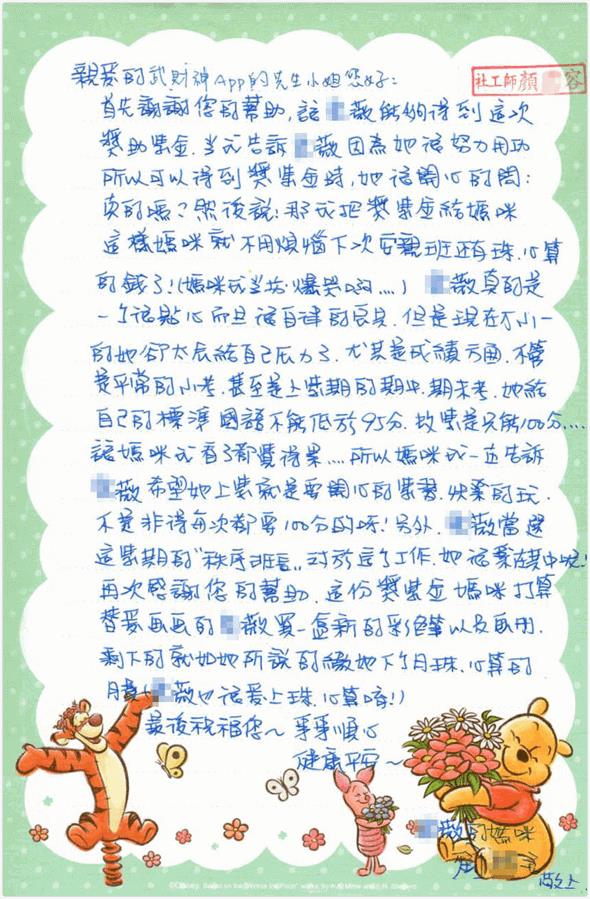 親愛的武財神App的先生小姐您好:
社工師顏 容
首先謝謝您的幫助,讓 薇能夠得到這次
獎助學金.當我告訴 薇因為她很努力用功
所以可以得到獎學金時,她很開心的問:
真的嗎?然後說:那我把獎學金給媽咪
這樣媽咪就不用煩惱下次安親班还有珠.心算
的錢了!(媽咪我當場爆哭啊....) 薇真的是
一个很貼心而且很自律的宝貝.但是現在才小一
的她卻太会給自己压力了.尤其是成績方面.不管
是平常的小考.甚至是上學期的期中.期末考.她給
自己的標準國語不能低於95分.数學是只能100分....
讓媽咪我看了都覺得累....所以媽咪我一直告訴
薇希望她上學就是要開心的學習.快樂的玩.
不是非得每次都要100分的呀!另外. 薇當選
這學期的"秩序班長",对於這个工作.她很樂在其中呢!
再次感謝您的幫助.這份獎學金媽咪打算
替愛画画的 薇買一盒新的彩色筆以及画冊.
剩下的就如她所說的繳她下个月珠.心算的
薇也很爱上珠.心算唷!)
最後祝福您~事事順心
健康平安~
薇的媽咪
敬上
©Disney. Based on the "Winnie the Pooh" works by A.A. Milne and E.H. Shepard